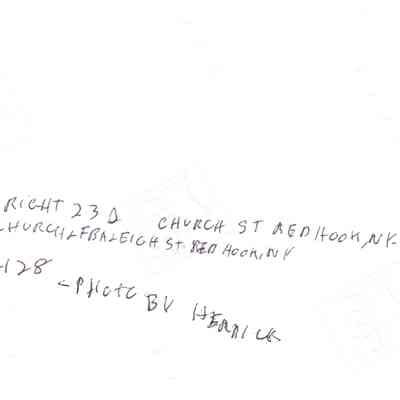 RIGHT 23 D CHURCH ST RED HOOK, NY.
CHURCH & FRALEIGH ST. RED HOOK, NY
128 - PHOTO BY HERRICK